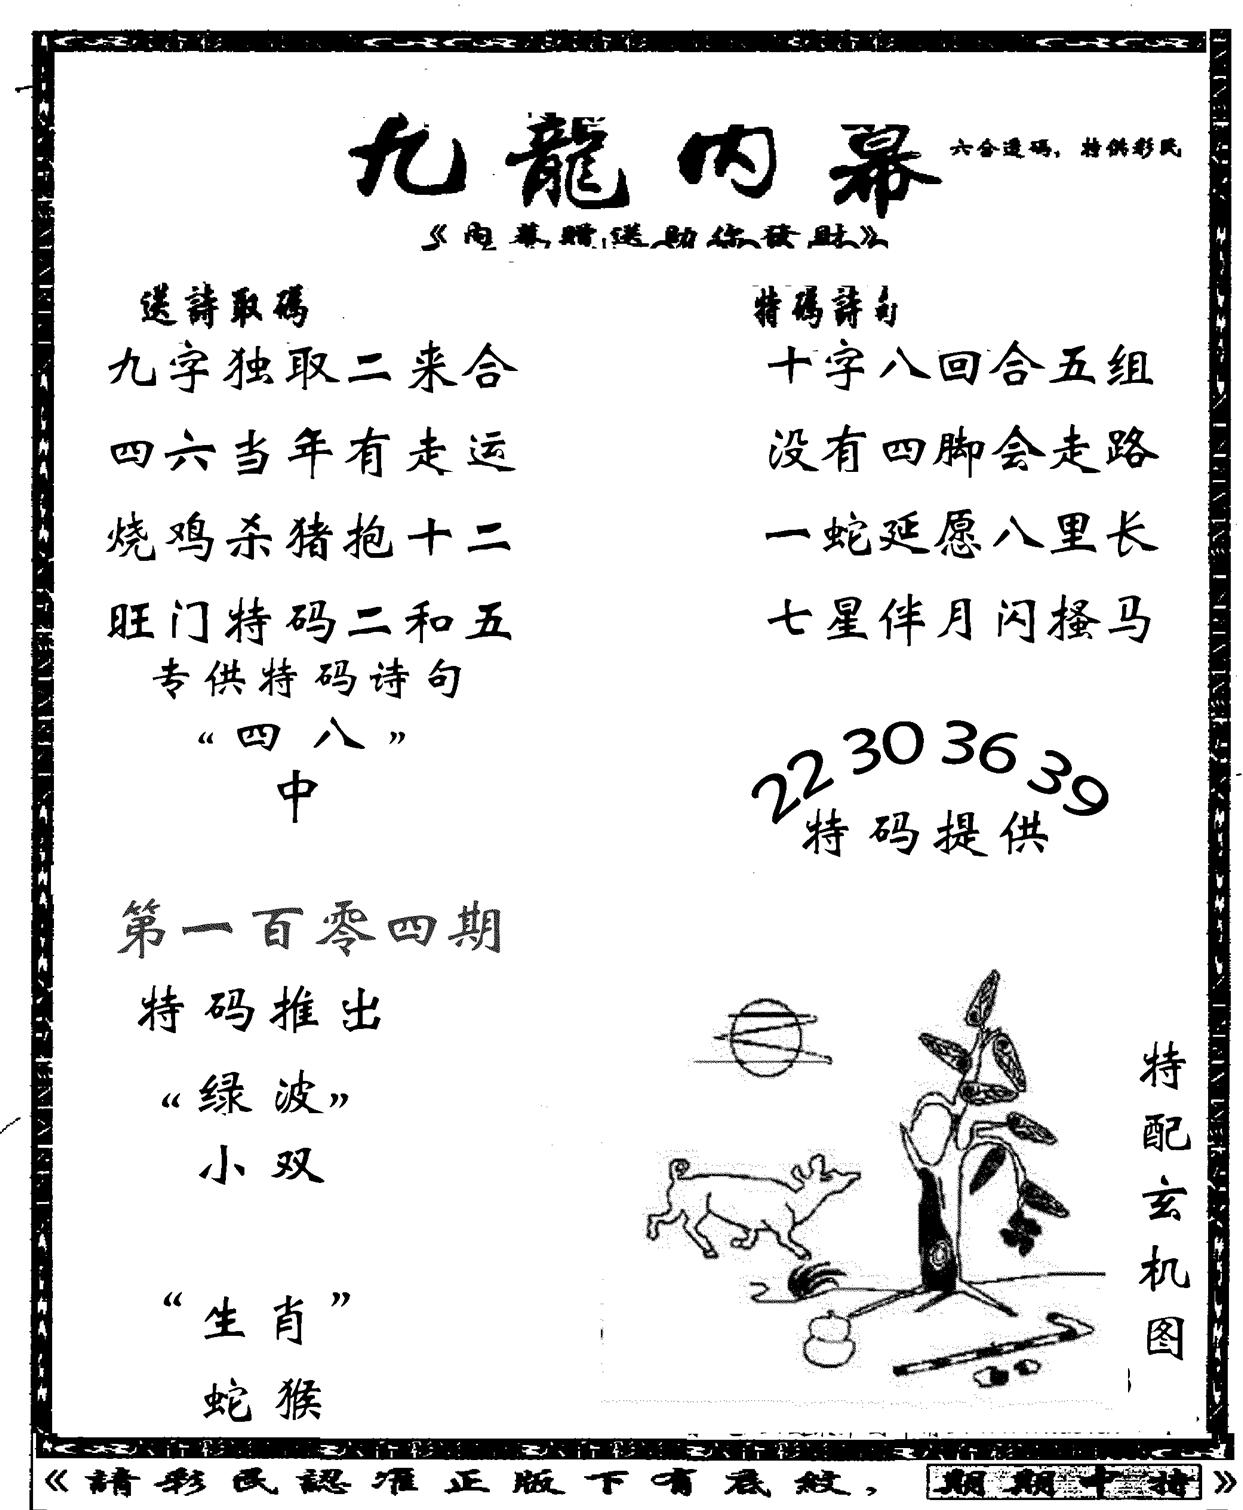 九龍内幕
六合透码，特供彩民
《内幕赠送助你發財》
送詩取碼
九字独取二来合
四六当年有走运
烧鸡杀猪抱十二
旺门特码二和五
专供特码诗句
“四八”
中
特碼詩句
十字八回合五组
没有四脚会走路
一蛇延愿八里长
七星伴月闪掻马
22 30 36 39
特码提供
第一百零四期
特码推出
“绿波”
小双
“生肖”
蛇猴
特配玄机图
《請彩民認准正版下有底紋，期期中特》